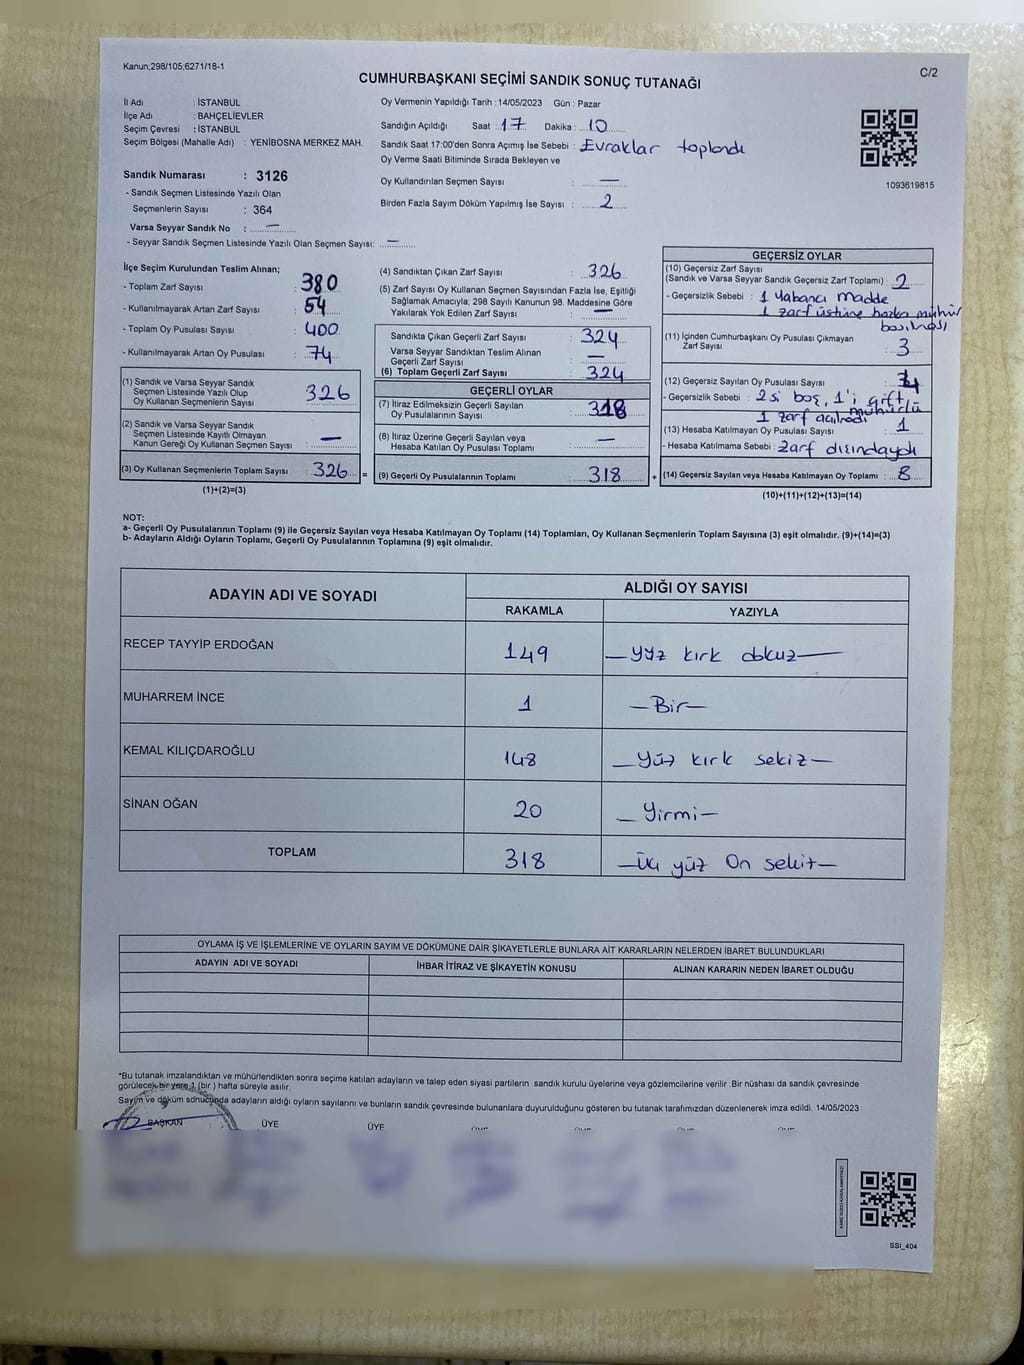 Kanun;298/105;6271/18-1
C/2
CUMHURBAŞKANI SEÇİMİ SANDIK SONUÇ TUTANAĞI
İl Adı : İSTANBUL
İlçe Adı : BAHÇELİEVLER
Seçim Çevresi : İSTANBUL
Seçim Bölgesi (Mahalle Adı) : YENİBOSNA MERKEZ MAH.
Sandık Numarası : 3126
- Sandık Seçmen Listesinde Yazılı Olan
Seçmenlerin Sayısı : 364
Varsa Seyyar Sandık No : —
- Seyyar Sandık Seçmen Listesinde Yazılı Olan Seçmen Sayısı: —
Oy Vermenin Yapıldığı Tarih : 14/05/2023 Gün : Pazar
Sandığın Açıldığı Saat : 17 Dakika : 10
Sandık Saat 17:00'den Sonra Açımış İse Sebebi : Evraklar toplandı
Oy Verme Saati Bitiminde Sırada Bekleyen ve
Oy Kullandırılan Seçmen Sayısı : —
Birden Fazla Sayım Döküm Yapılmış İse Sayısı : 2
1093619815
İlçe Seçim Kurulundan Teslim Alınan;
- Toplam Zarf Sayısı : 380
- Kullanılmayarak Artan Zarf Sayısı : 54
- Toplam Oy Pusulası Sayısı : 400
- Kullanılmayarak Artan Oy Pusulası : 74
(1) Sandık ve Varsa Seyyar Sandık
Seçmen Listesinde Yazılı Olup
Oy Kullanan Seçmenlerin Sayısı : 326
(2) Sandık ve Varsa Seyyar Sandık
Seçmen Listesinde Kayıtlı Olmayan
Kanun Gereği Oy Kullanan Seçmen Sayısı : —
(3) Oy Kullanan Seçmenlerin Toplam Sayısı : 326 =
(1)+(2)=(3)
(4) Sandıktan Çıkan Zarf Sayısı : 326
(5) Zarf Sayısı Oy Kullanan Seçmen Sayısından Fazla İse, Eşitliği
Sağlamak Amacıyla; 298 Sayılı Kanunun 98. Maddesine Göre
Yakılarak Yok Edilen Zarf Sayısı : —
Sandıkta Çıkan Geçerli Zarf Sayısı : 324
Varsa Seyyar Sandıktan Teslim Alınan
Geçerli Zarf Sayısı : —
(6) Toplam Geçerli Zarf Sayısı : 324
GEÇERLİ OYLAR
(7) İtiraz Edilmeksizin Geçerli Sayılan
Oy Pusulalarının Sayısı : 318
(8) İtiraz Üzerine Geçerli Sayılan veya
Hesaba Katılan Oy Pusulası Toplamı : —
(9) Geçerli Oy Pusulalarının Toplamı : 318 +
GEÇERSİZ OYLAR
(10) Geçersiz Zarf Sayısı
(Sandık ve Varsa Seyyar Sandık Geçersiz Zarf Toplamı) : 2
- Geçersizlik Sebebi : 1 Yabancı madde
1 zarf üstüne başka mühür
basılması
(11) İçinden Cumhurbaşkanı Oy Pusulası Çıkmayan
Zarf Sayısı : 3
(12) Geçersiz Sayılan Oy Pusulası Sayısı :
- Geçersizlik Sebebi : 2si boş, 1'i çift
mühürlü
1 zarf açılmadı
(13) Hesaba Katılmayan Oy Pusulası Sayısı : 1
- Hesaba Katılmama Sebebi : Zarf dışındaydı
(14) Geçersiz Sayılan veya Hesaba Katılmayan Oy Toplamı : 8
(10)+(11)+(12)+(13)=(14)
NOT:
a- Geçerli Oy Pusulalarının Toplamı (9) ile Geçersiz Sayılan veya Hesaba Katılmayan Oy Toplamı (14) Toplamları, Oy Kullanan Seçmenlerin Toplam Sayısına (3) eşit olmalıdır. (9)+(14)=(3)
b- Adayların Aldığı Oyların Toplamı, Geçerli Oy Pusulalarının Toplamına (9) eşit olmalıdır.
ADAYIN ADI VE SOYADI
ALDIĞI OY SAYISI
RAKAMLA YAZIYLA
RECEP TAYYİP ERDOĞAN 149 — yüz kırk dokuz —
MUHARREM İNCE 1 — Bir —
KEMAL KILIÇDAROĞLU 148 — Yüz kırk sekiz —
SİNAN OĞAN 20 — Yirmi —
TOPLAM 318 — üç yüz On sekiz —
OYLAMA İŞ VE İŞLEMLERİNE VE OYLARIN SAYIM VE DÖKÜMÜNE DAİR ŞİKAYETLERLE BUNLARA AİT KARARLARIN NELERDEN İBARET BULUNDUKLARI
ADAYIN ADI VE SOYADI İHBAR İTİRAZ VE ŞİKAYETİN KONUSU ALINAN KARARIN NEDEN İBARET OLDUĞU
*Bu tutanak imzalandıktan ve mühürlendikten sonra seçime katılan adayların ve talep eden siyasi partilerin sandık kurulu üyelerine veya gözlemcilerine verilir. Bir nüshası da sandık çevresinde
görülecek bir yere 1 (bir ) hafta süreyle asılır.
Sayım ve döküm sonucunda adayların aldığı oyların sayılarını ve bunların sandık çevresinde bulunanlara duyurulduğunu gösteren bu tutanak tarafımızdan düzenlenerek imza edildi. 14/05/2023
BAŞKAN ÜYE ÜYE
SSI_404